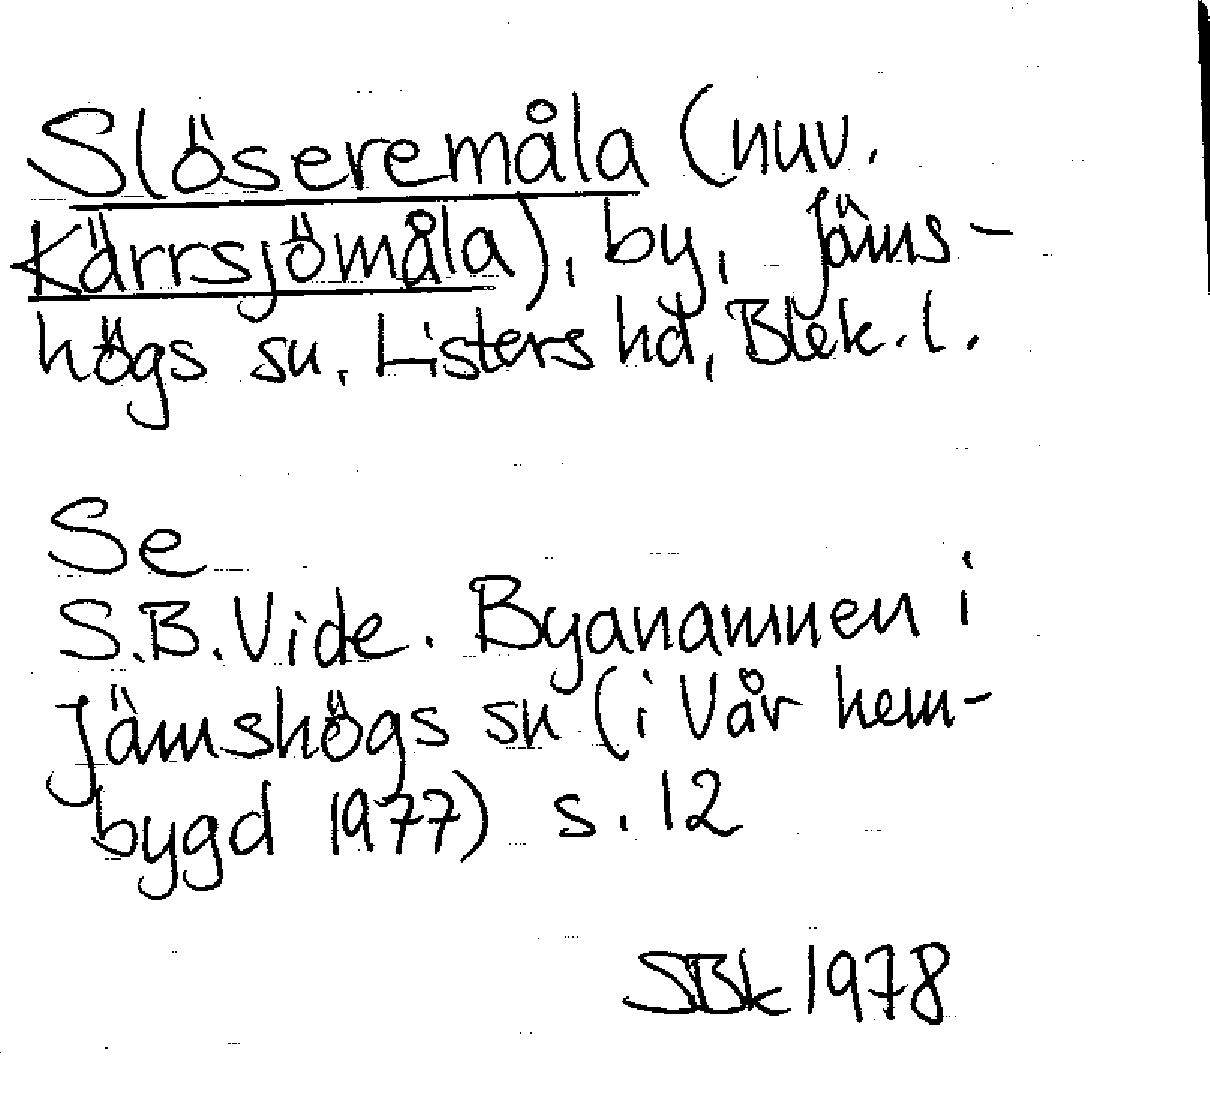 Slöseremåla (nuv.
Kärrsjömåla), by, Jäms-
högs sn, Listers hd, Blek. l.
Se
S.B. Vide. Byanamnen i
Jämshögs sn (i Vår hem-
bygd 1977) s. 12
SBk 1978